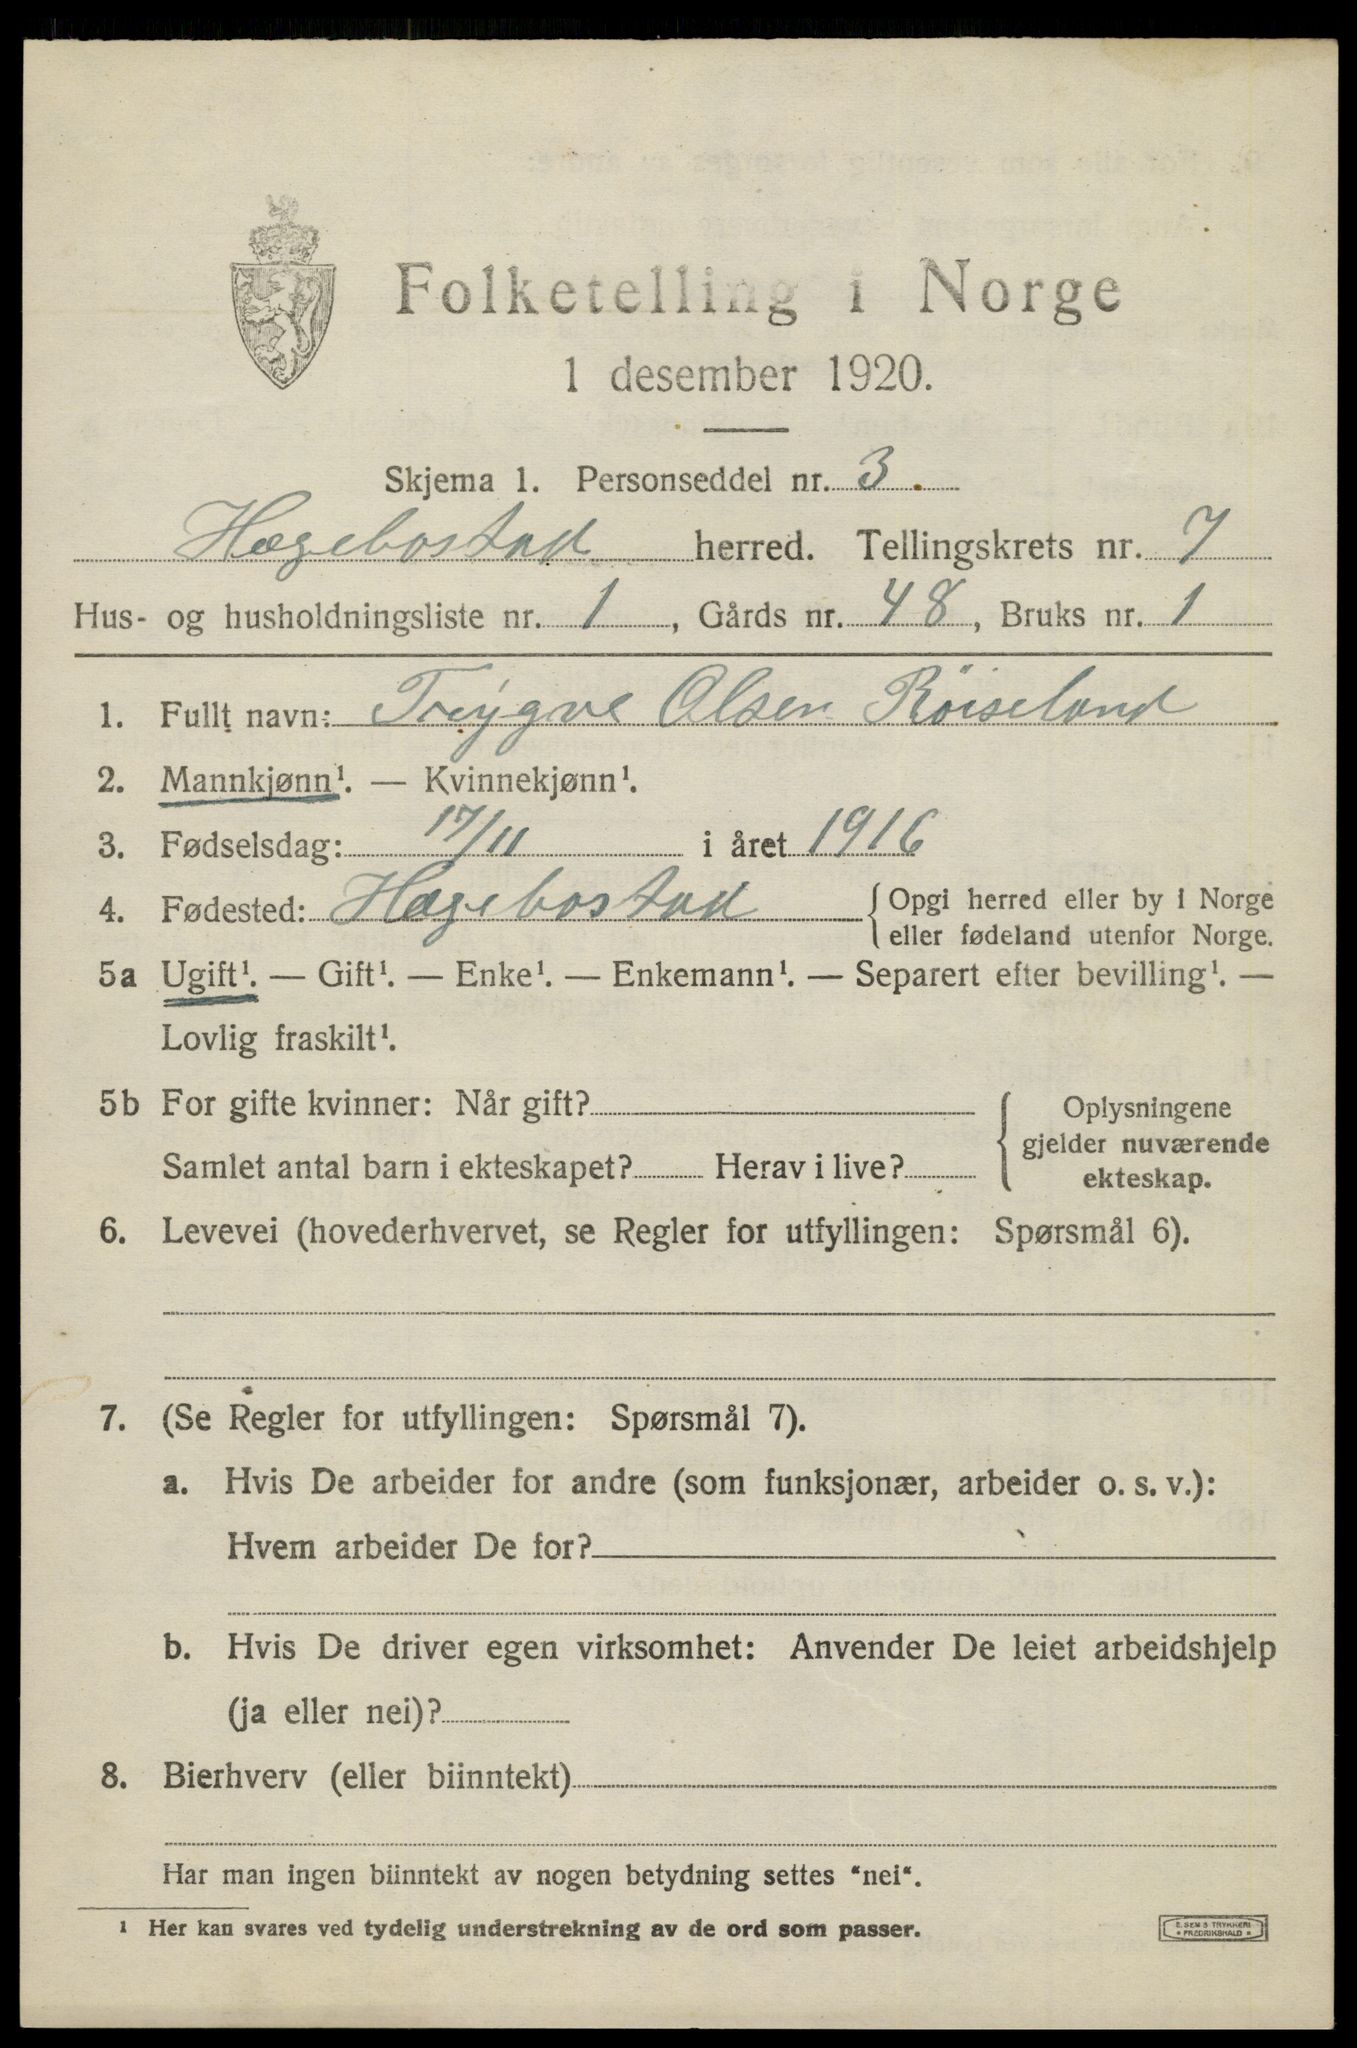 Folketelling i Norge
1 desember 1920.
Skjema 1. Personseddel nr. 3.
Hægebostad herred. Tellingskrets nr. 7
Hus- og husholdningsliste nr. 1, Gårds nr. 48, Bruks nr. 1
1. Fullt navn: Trÿgve Olsen Röiseland
2. Mannkjønn¹. — Kvinnekjønn¹.
3. Fødselsdag: 17/11 i året 1916
4. Fødested: Hægebostad { Opgi herred eller by i Norge
eller fødeland utenfor Norge.
5a Ugift¹. — Gift¹. — Enke¹. — Enkemann¹. — Separert efter bevilling¹. —
Lovlig fraskilt¹.
5b For gifte kvinner: Når gift? { Oplysningene
gjelder nuværende
Samlet antal barn i ekteskapet? Herav i live?
ekteskap.
6. Levevei (hovederhvervet, se Regler for utfyllingen: Spørsmål 6).
7. (Se Regler for utfyllingen: Spørsmål 7).
a. Hvis De arbeider for andre (som funksjonær, arbeider o. s. v.):
Hvem arbeider De for?
b. Hvis De driver egen virksomhet: Anvender De leiet arbeidshjelp
(ja eller nei)?
8. Bierhverv (eller biinntekt)
Har man ingen biinntekt av nogen betydning settes “nei“.
¹ Her kan svares ved tydelig understrekning av de ord som passer.
E. SEM'S TRYKKERI
* FREDRIKSHALD *